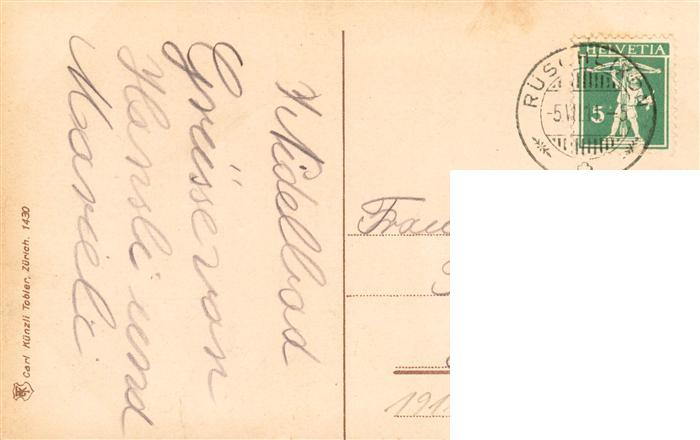 Nidelbad
Grüsse von
Hansli und
Mareili
Carl Künzli Tobler, Zürich. 1430
HELVETIA
5
RÜSCHLIKON
Frau